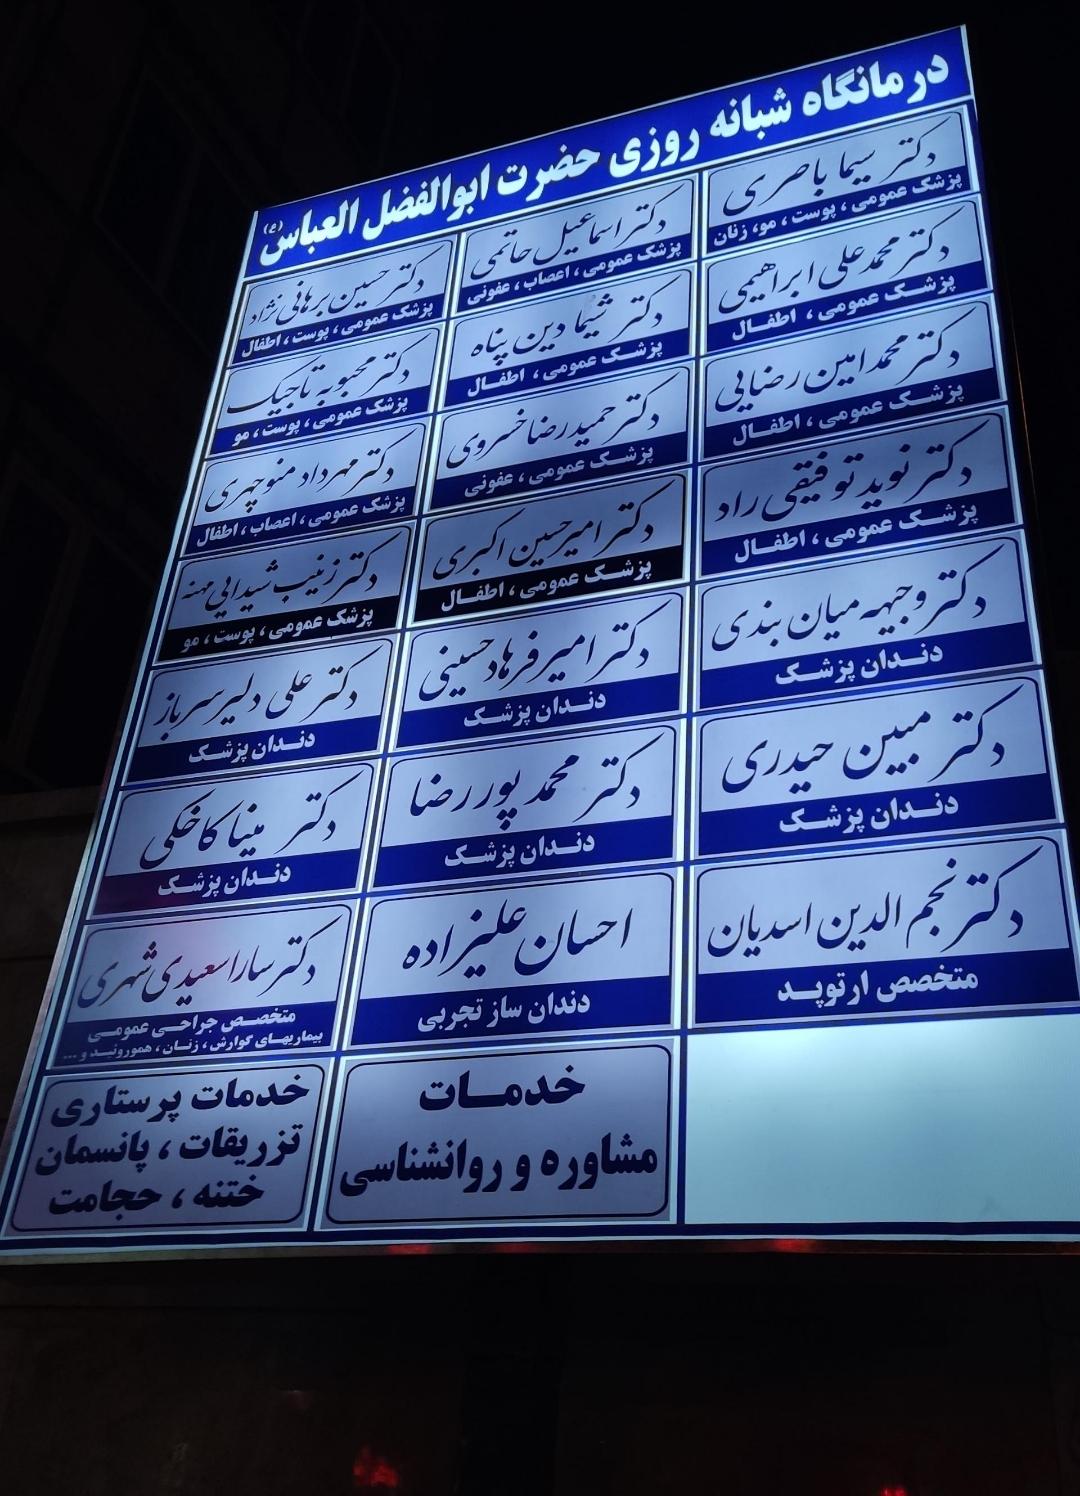 درمانگاه شبانه روزی حضرت ابوالفضل العباس (ع)
دکتر سیما باصری
پزشک عمومی ، پوست ، مو، زنان
دکتر اسماعیل حاتمی
پزشک عمومی ، اعصاب ، عفونی
دکتر حسین برهانی نژاد
پزشک عمومی ، پوست ، اطفال
دکتر محمدعلی ابراهیمی
پزشک عمومی ، اطفال
دکتر شیما دین پناه
پزشک عمومی ، اطفال
دکتر محبوبه تاجیک
پزشک عمومی ، پوست ، مو
دکتر محمدامین رضایی
پزشک عمومی ، اطفال
دکتر حمیدرضا خسروی
پزشک عمومی ، عفونی
دکتر مهرداد منوچهری
پزشک عمومی ، اعصاب ، اطفال
دکتر نوید توفیقی راد
پزشک عمومی ، اطفال
دکتر امیرحسین اکبری
پزشک عمومی ، اطفال
دکتر زینب شیدایی مهنه
پزشک عمومی ، پوست ، مو
دکتر وجیهه میان بندی
دندان پزشک
دکتر امیر فرهاد حسینی
دندان پزشک
دکتر علی دلیر سرباز
دندان پزشک
دکتر مبین حیدری
دندان پزشک
دکتر محمد پور رضا
دندان پزشک
دکتر مینا کاخکی
دندان پزشک
دکتر نجم الدین اسدیان
متخصص ارتوپد
احسان علیزاده
دندان ساز تجربی
دکتر سارا سعیدی شهری
متخصص جراحی عمومی
بیماریهای گوارش ، زنان ، هموروئید و ...
خدمات
مشاوره و روانشناسی
خدمات پرستاری
تزریقات ، پانسمان
ختنه ، حجامت